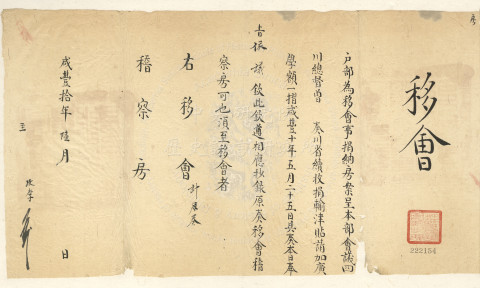 移會
戶部為移會事捐納房案呈本部會議四
川總督曾 奏川省續收捐輸津貼請加廣
學額一摺咸豐十年五月二十五日具奏本日奉
旨依議欽此欽遵相應抄錄原奏移會稽
察房可也須至移會者
右移會 計原奏
稽察房
咸豐拾年陸月 日
222154